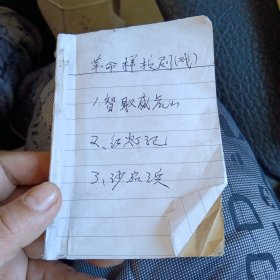 革命样板剧(戏)
1.智取威虎山
2、红灯记
3、沙家浜